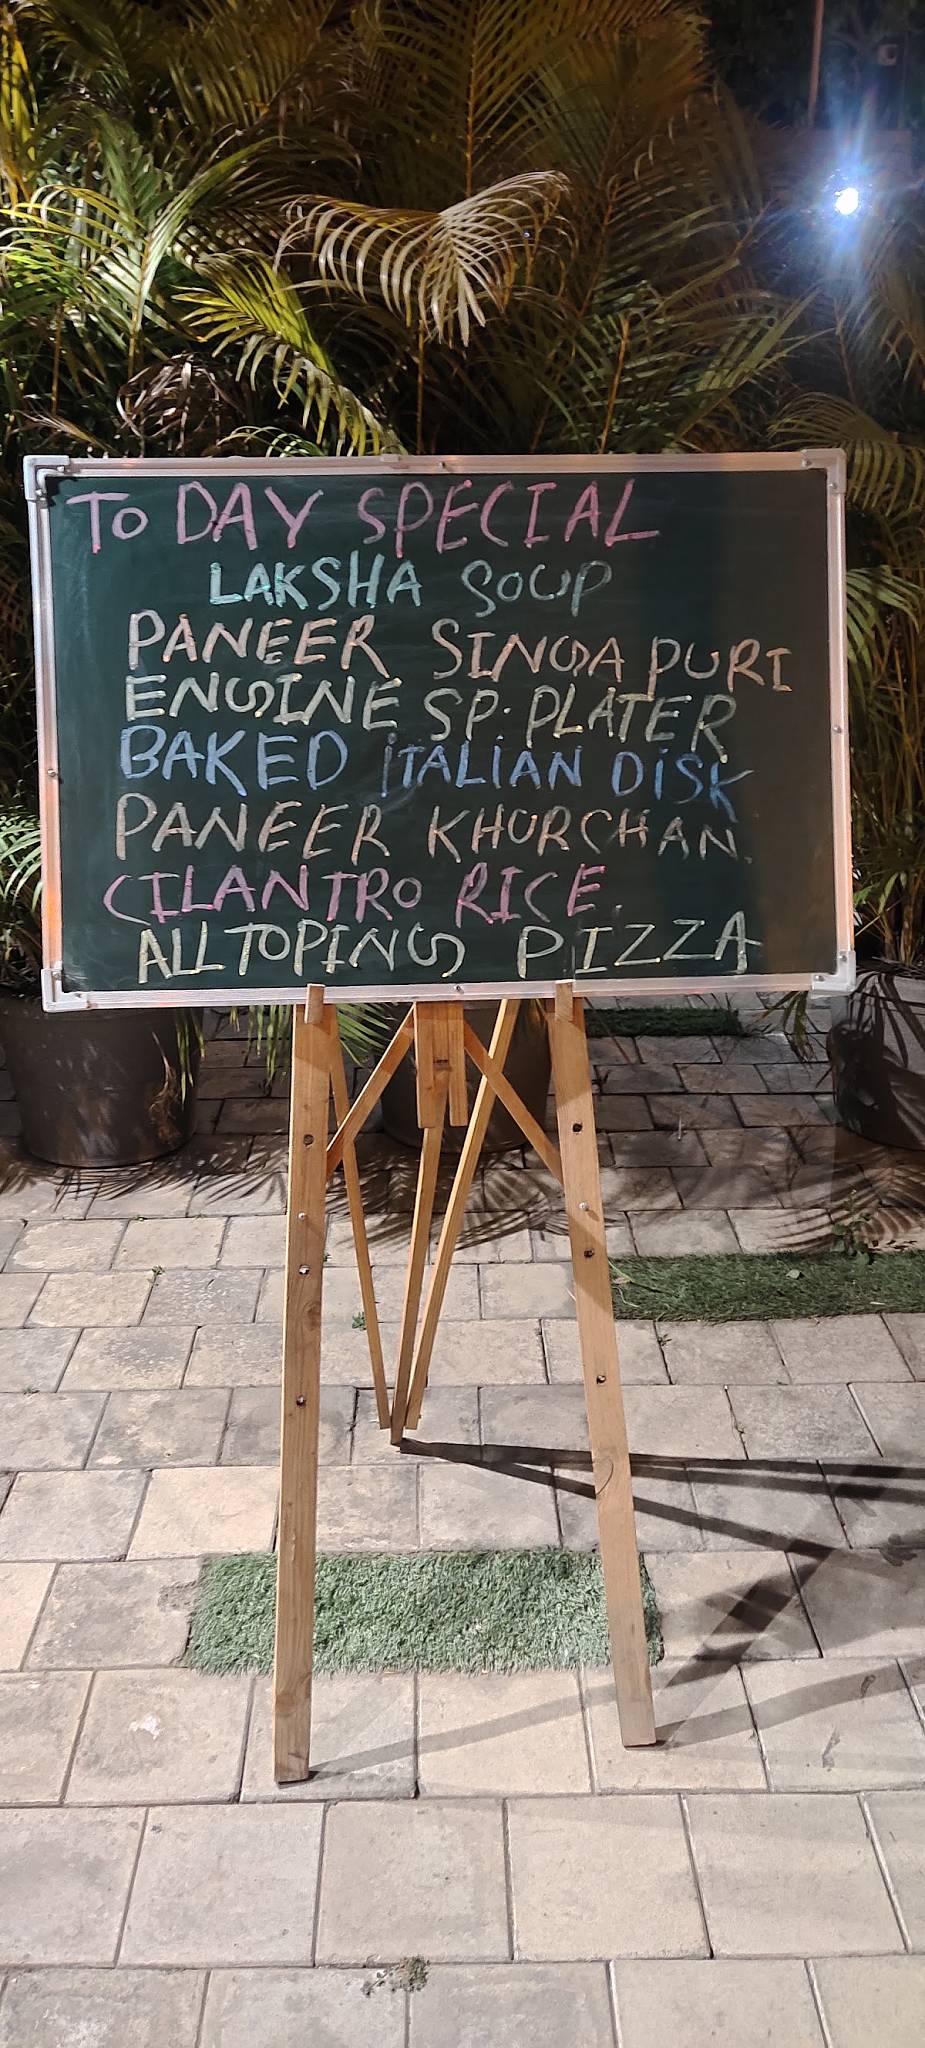 To DAY SPECIAL
LAKSHA SOUP
PANEER SINGAPURI
ENGINE SP. PLATER
BAKED iTALiAN DiSK
PANEER KHURCHAN.
CILANTRO RICE.
ALL TOPING PIZZA